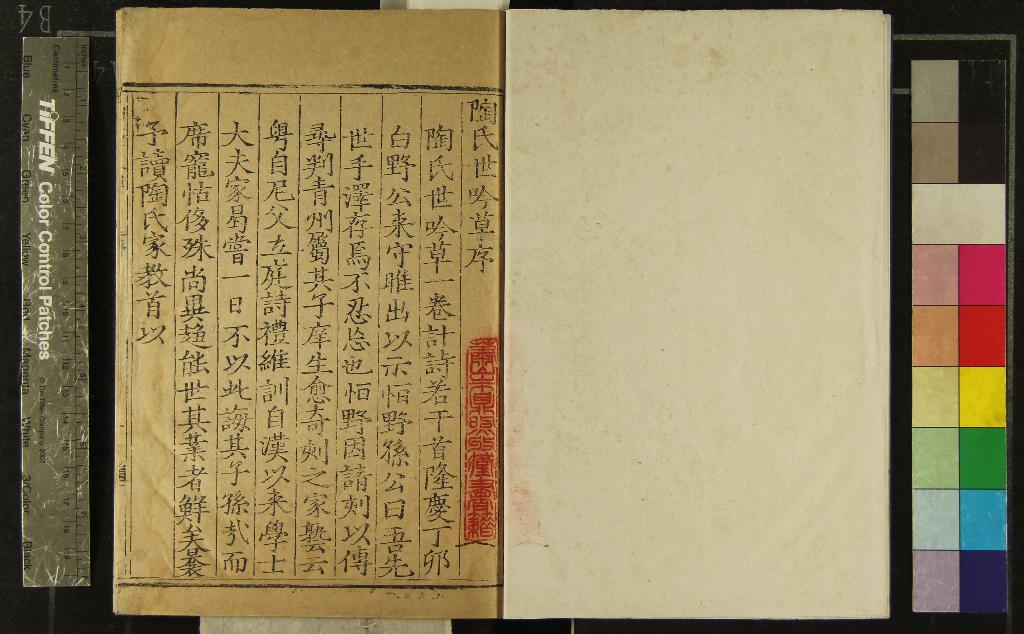 陶氏世吟草序
陶氏世吟草一卷計詩若干首隆慶丁卯
白野公来守睢出以示恒野孫公曰吾先
世手澤存焉不忍忘也恒野因請刻以傳
彞判青州屬其子庠生愈奇刻之家塾云
粤自尼父立庭詩禮維訓自漢以来學士
大夫家曷嘗一日不以此誨其子孫㢤而
席寵怙侈殊尚異趨能世其業者鮮矣曩
予讀陶氏家教首以
B4
inches
Centimetres
TIFFEN Color Control Patches
Blue
Cyan
Green
Yellow
Red
Magenta
White
3/Color
Black